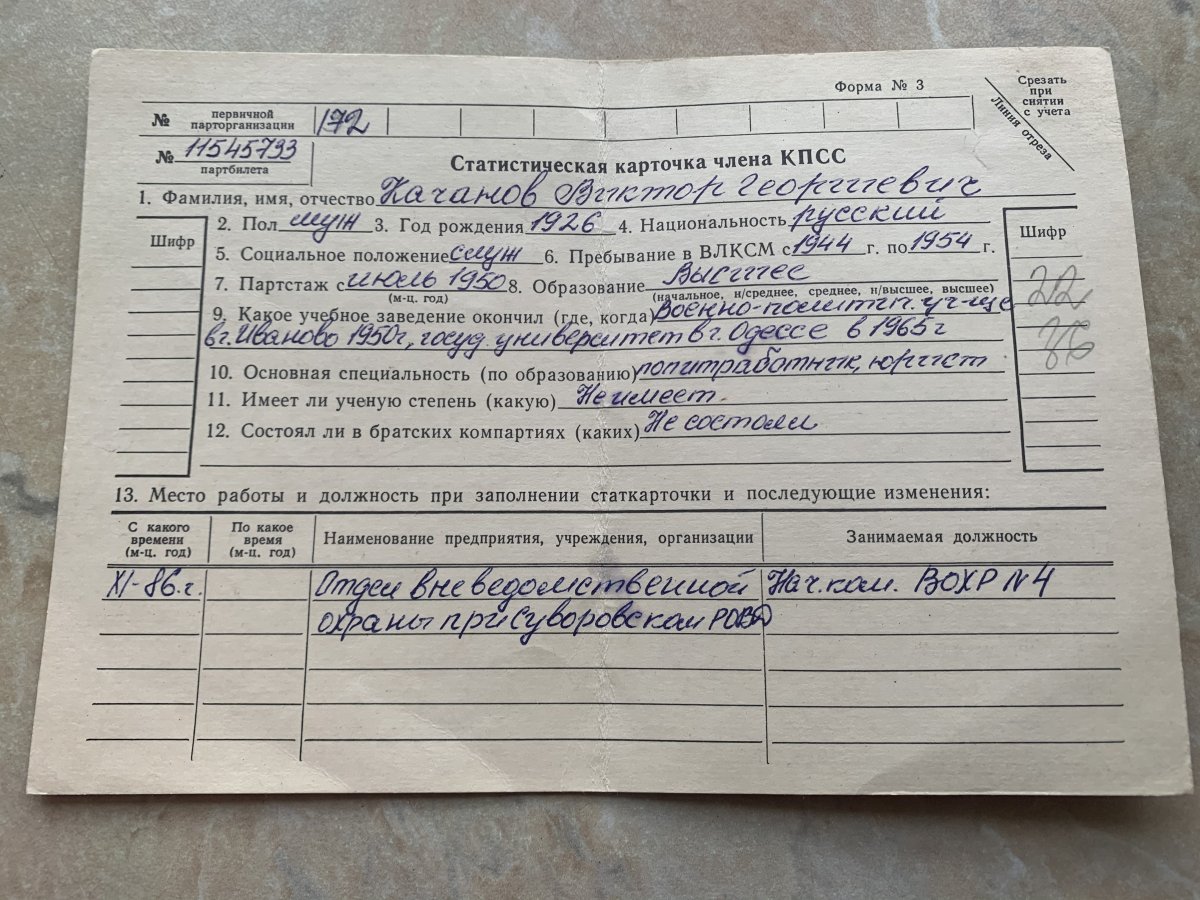 Форма № 3
Срезать
при
снятии
с учета
Линия отреза
№ первичной парторганизации 172
№ 11545793
партбилета
Статистическая карточка члена КПСС
1. Фамилия, имя, отчество Качанов Виктор Георгиевич
Шифр
2. Пол муж 3. Год рождения 1926 4. Национальность русский
Шифр
5. Социальное положение служ 6. Пребывание в ВЛКСМ с 1944 г. по 1954 г.
7. Партстаж с июль 1950 8. Образование Высшее
(м-ц. год) (начальное, н/среднее, среднее, н/высшее, высшее)
22
9. Какое учебное заведение окончил (где, когда) Военно-политич. уч-ще
в г. Иваново 1950г, госуд. университет в г. Одессе в 1965г
10. Основная специальность (по образованию) политработник, юрист
11. Имеет ли ученую степень (какую) Не имеет.
12. Состоял ли в братских компартиях (каких) Не состоял
13. Место работы и должность при заполнении статкарточки и последующие изменения:
С какого времени (м-ц. год) По какое время (м-ц. год) Наименование предприятия, учреждения, организации Занимаемая должность
XI-86.г. Отдел вневедомственной Нач.ком. ВОХР №4
охраны при Суворовском РОВД